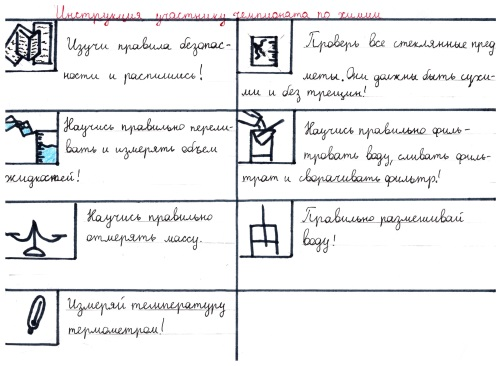 Инструкция участнику чемпионата по химии
Изучи правила безопас-
ности и распишись!
Проверь все стеклянные пред
меты. Они должны быть сухи-
ми и без трещин!
Научись правильно перели-
вать и измерять объем
жидкостей!
Научись правильно филь-
тровать воду, сливать филь-
трат и сворачивать фильтр!
Научись правильно
отмерять массу.
Правильно размешивай
воду!
Измеряй температуру
термометром!